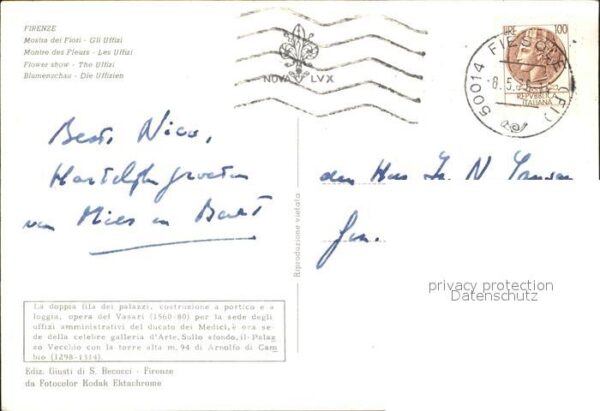 FIRENZE
Mostra dei Fiori - Gli Uffizi
Montre des Fleurs - Les Uffizi
Flower show - The Uffizi
Blumenschau - Die Uffizien
NOVA LVX
LIRE 100
REPVBBLICA
ITALIANA
50014 FIESOLE (FI)
-8.5.
Beste Nico,
Hartelijke groeten
van Mies en Bart
den Heer
Riproduzione vietata
privacy protection
Datenschutz
La doppia fila dei palazzi, costruzione a portico e a
loggia, opera del Vasari (1560-80) per la sede degli
uffizi amministrativi del ducato dei Medici, è ora se-
de della celebre galleria d'Arte. Sullo sfondo, il Palaz
zo Vecchio con la torre alta m. 94 di Arnolfo di Cam
bio (1298-1314).
Ediz. Giusti di S. Becocci - Firenze
da Fotocolor Kodak Ektachrome